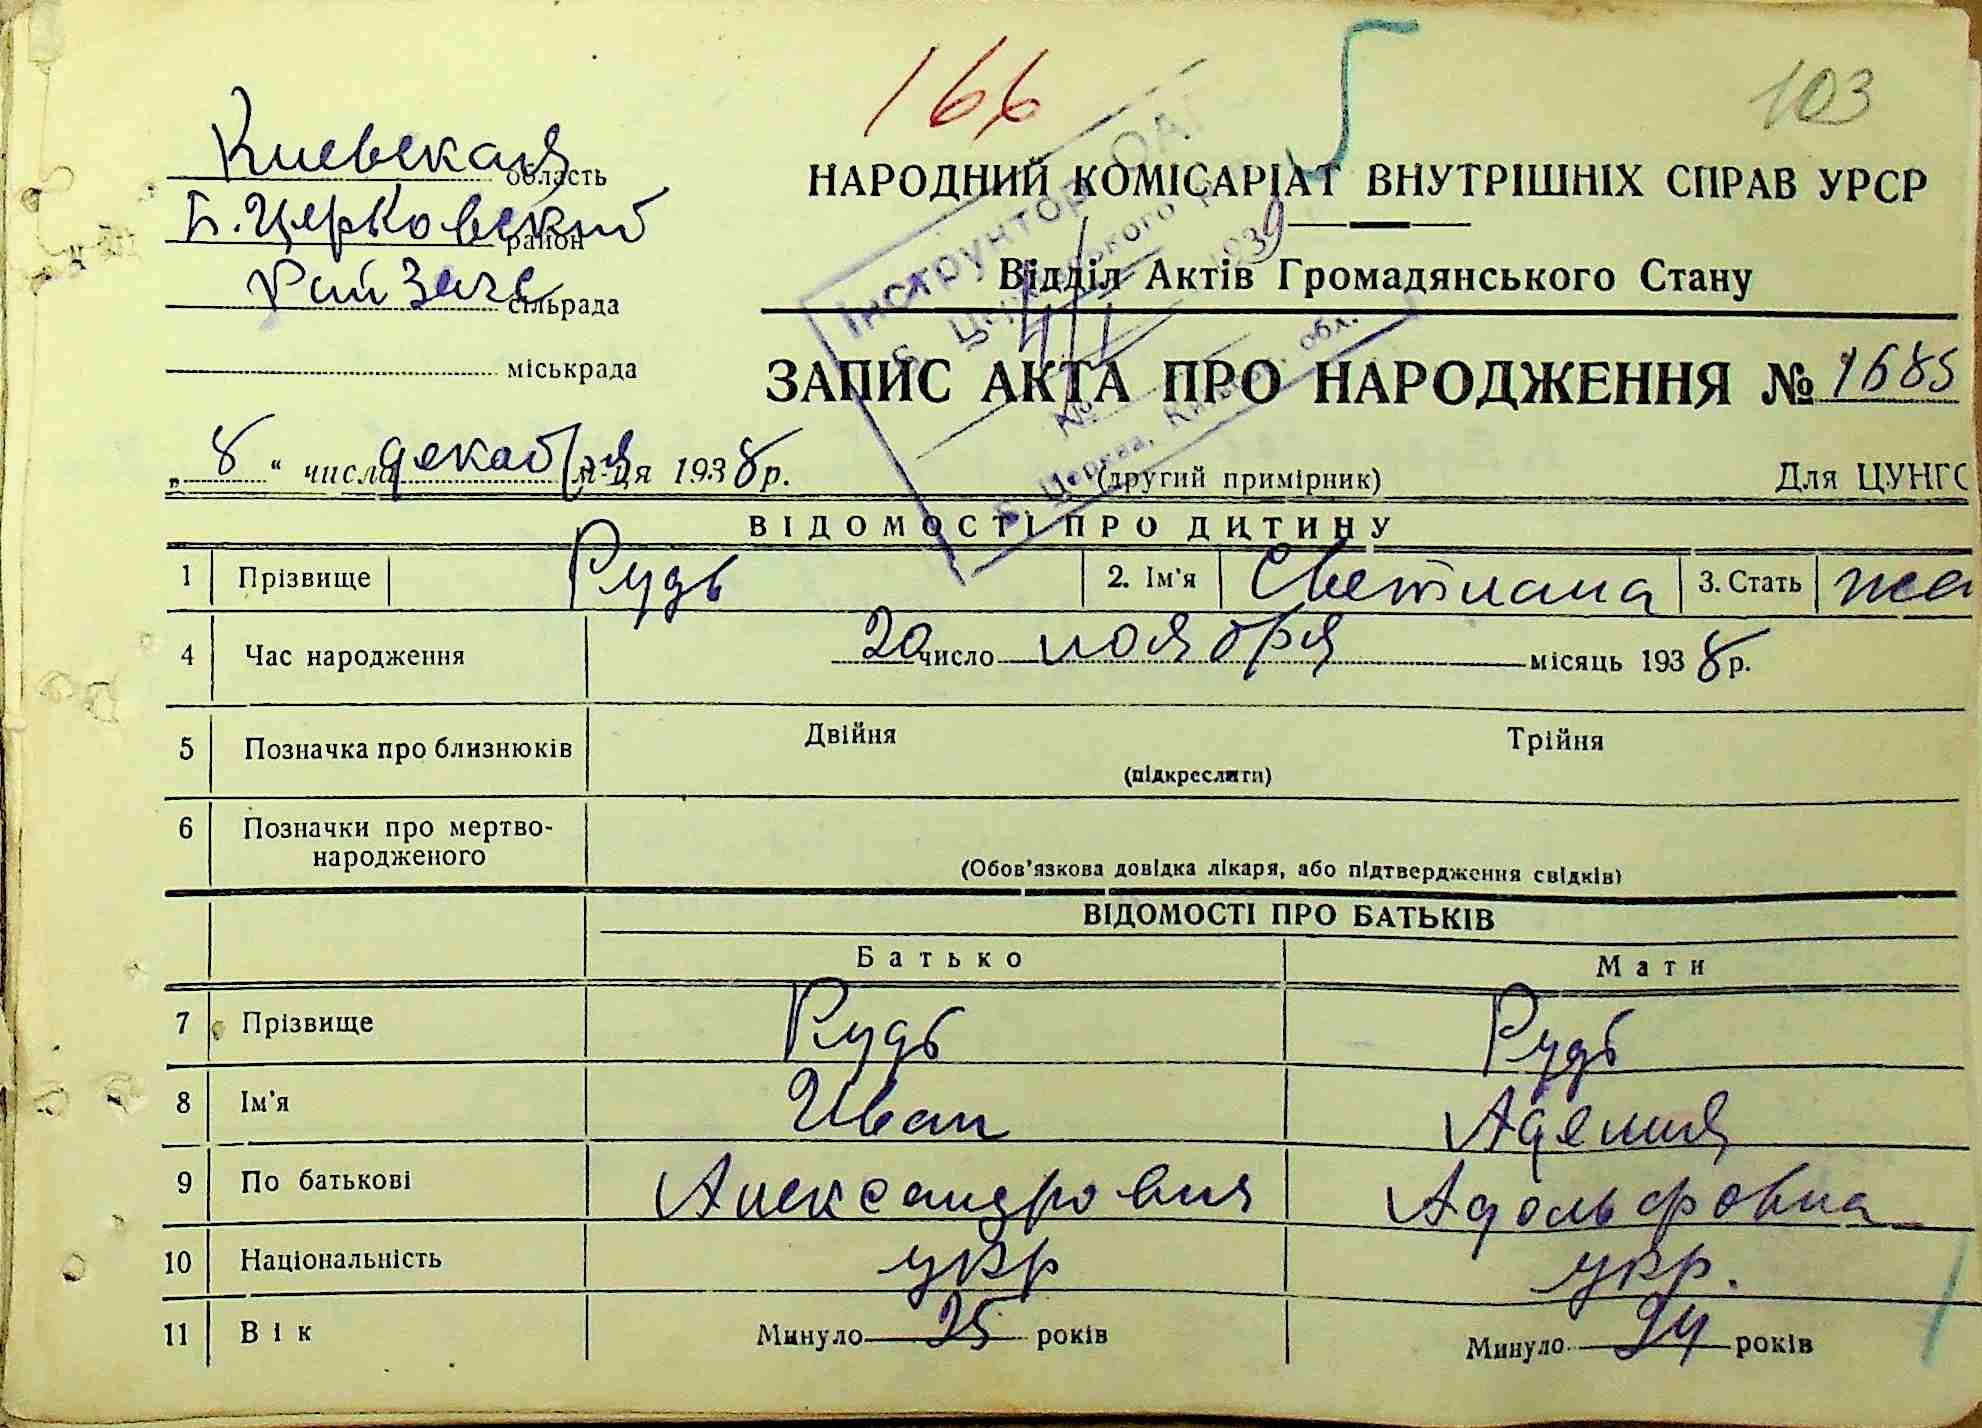 166
103
Киевская область
Б. Церковский район
Рай Загс сільрада
міськрада
НАРОДНИЙ КОМІСАРІАТ ВНУТРІШНІХ СПРАВ УРСР
Відділ Актів Громадянського Стану
ЗАПИС АКТА ПРО НАРОДЖЕННЯ № 1685
„ 8 “ числа декабря м-ця 1938 р.
(другий примірник)
Для ЦУНГО
Інструктор ОАГС
1939
№
Б. Церква, Київ. обл.
ВІДОМОСТІ ПРО ДИТИНУ
1 Прізвище Рудь 2. Ім'я Светлана 3. Стать же
4 Час народження 20 число ноября місяць 1938 р.
5 Позначка про близнюків Двійня Трійня
(підкреслити)
6 Позначки про мертво-
народженого
(Обов'язкова довідка лікаря, або підтвердження свідків)
ВІДОМОСТІ ПРО БАТЬКІВ
Батько Мати
7 Прізвище Рудь Рудь
8 Ім'я Иван
9 По батькові Александрович Адольфовна
10 Національність укр укр.
11 Вік Минуло 25 років Минуло 24 років